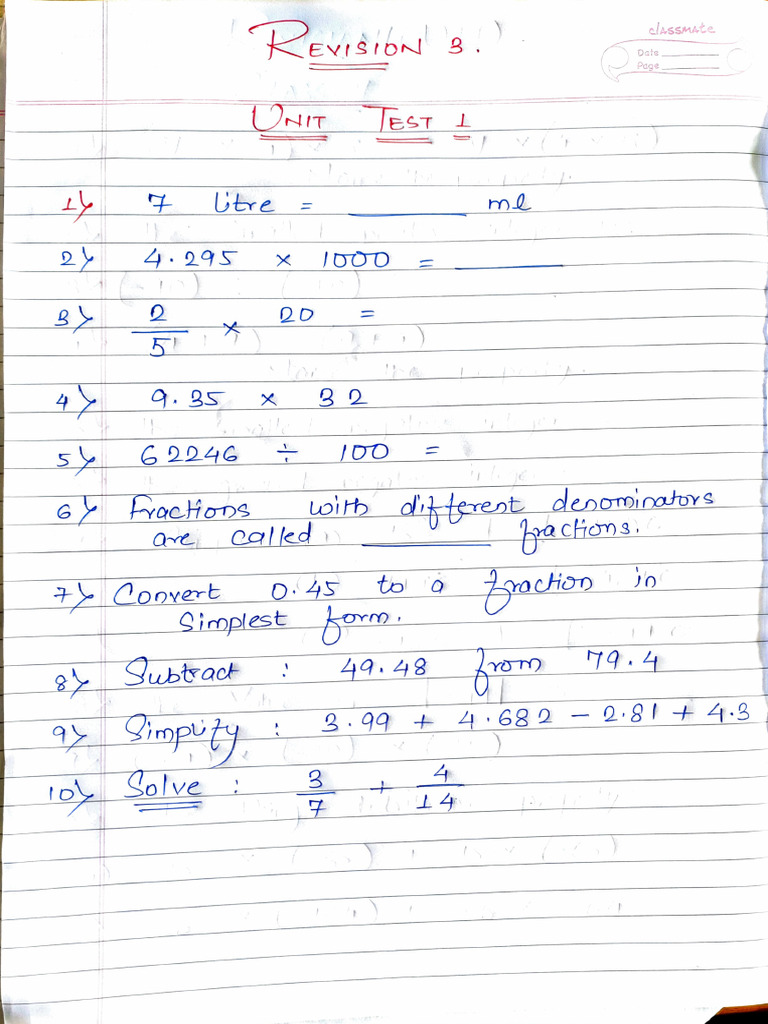 REVISION 3.
classmate
Date
Page
UNIT TEST 1
1) 7 litre = ______ ml
2) 4.295 × 1000 = ______
3) 2/5 × 20 =
4) 9.35 × 32
5) 62246 ÷ 100 =
6) Fractions with different denominators
are called ______ fractions.
7) Convert 0.45 to a fraction in
simplest form.
8) Subtract : 49.48 from 79.4
9) Simplify : 3.99 + 4.682 - 2.81 + 4.3
10) Solve : 3/7 + 4/14